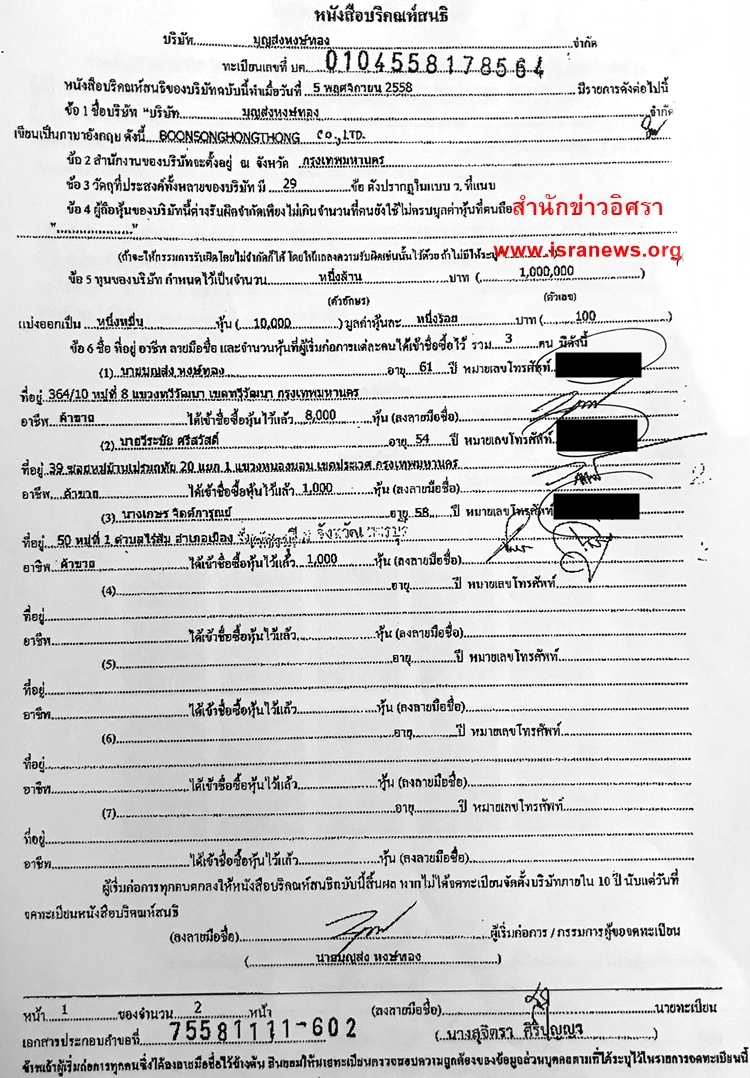 หนังสือบริคณห์สนธิ
บริษัท บุญส่งหงษ์ทอง จำกัด
ทะเบียนเลขที่ บค. 0104558178564
หนังสือบริคณห์สนธิของบริษัทฉบับนี้ทำเมื่อวันที่ 5 พฤศจิกายน 2558 มีรายการดังต่อไปนี้
ข้อ 1 ชื่อบริษัท "บริษัท บุญส่งหงษ์ทอง จำกัด
เขียนเป็นภาษาอังกฤษ ดังนี้ BOONSONGHONGTHONG CO.,LTD.
ข้อ 2 สำนักงานของบริษัทจะตั้งอยู่ ณ จังหวัด กรุงเทพมหานคร
ข้อ 3 วัตถุที่ประสงค์ทั้งหลายของบริษัท มี 29 ข้อ ดังปรากฏในแบบ ว. ที่แนบ
ข้อ 4 ผู้ถือหุ้นของบริษัทนี้ต่างรับผิดจำกัดเพียงไม่เกินจำนวนเงินที่ตนยังใช้ไม่ครบมูลค่าหุ้นที่ตนถือ
สำนักข่าวอิศรา
www.isranews.org
(ถ้าจะให้กรรมการรับผิดโดยไม่จำกัดก็ได้ โดยให้แถลงความรับผิดเช่นนั้นไว้ด้วย ถ้าไม่มีให้ระบุ
ข้อ 5 ทุนของบริษัท กำหนดไว้เป็นจำนวน หนึ่งล้าน บาท ( 1,000,000 )
(ตัวอักษร) (ตัวเลข)
แบ่งออกเป็น หนึ่งหมื่น หุ้น ( 10,000 ) มูลค่าหุ้นละ หนึ่งร้อย บาท ( 100 )
ข้อ 6 ชื่อ ที่อยู่ อาชีพ ลายมือชื่อ และจำนวนหุ้นที่ผู้เริ่มก่อการแต่ละคนได้เข้าชื่อซื้อไว้ รวม 3 คน มีดังนี้
(1) นายบุญส่ง หงษ์ทอง อายุ 61 ปี หมายเลขโทรศัพท์
ที่อยู่ 364/10 หมู่ที่ 8 แขวงทวีวัฒนา เขตทวีวัฒนา กรุงเทพมหานคร
อาชีพ ค้าขาย ได้เข้าชื่อซื้อหุ้นไว้แล้ว 8,000 หุ้น (ลงลายมือชื่อ)
(2) นายวีระชัย ศรีสวัสดิ์ อายุ 54 ปี หมายเลขโทรศัพท์
ที่อยู่ 39 ซอยหมู่บ้านเปรมฤทัย 20 แยก 1 แขวงหนองบอน เขตประเวศ กรุงเทพมหานคร
อาชีพ ค้าขาย ได้เข้าชื่อซื้อหุ้นไว้แล้ว 1,000 หุ้น (ลงลายมือชื่อ)
(3) นางเกษร จิตต์การุณย์ อายุ 58 ปี หมายเลขโทรศัพท์
ที่อยู่ 50 หมู่ที่ 1 ตำบลไร่ส้ม อำเภอเมือง จังหวัด
อาชีพ ค้าขาย ได้เข้าชื่อซื้อหุ้นไว้แล้ว 1,000 หุ้น (ลงลายมือชื่อ)
(4) อายุ ปี หมายเลขโทรศัพท์
ที่อยู่
อาชีพ ได้เข้าชื่อซื้อหุ้นไว้แล้ว หุ้น (ลงลายมือชื่อ)
(5) อายุ ปี หมายเลขโทรศัพท์
ที่อยู่
อาชีพ ได้เข้าชื่อซื้อหุ้นไว้แล้ว หุ้น (ลงลายมือชื่อ)
(6) อายุ ปี หมายเลขโทรศัพท์
ที่อยู่
อาชีพ ได้เข้าชื่อซื้อหุ้นไว้แล้ว หุ้น (ลงลายมือชื่อ)
(7) อายุ ปี หมายเลขโทรศัพท์
ที่อยู่
อาชีพ ได้เข้าชื่อซื้อหุ้นไว้แล้ว หุ้น (ลงลายมือชื่อ)
ผู้เริ่มก่อการทุกคนตกลงให้หนังสือบริคณห์สนธิฉบับนี้สิ้นผล หากไม่ได้จดทะเบียนจัดตั้งบริษัทภายใน 10 ปี นับแต่วันที่
จดทะเบียนหนังสือบริคณห์สนธิ
(ลงลายมือชื่อ) ผู้เริ่มก่อการ / กรรมการผู้ขอจดทะเบียน
( นายบุญส่ง หงษ์ทอง )
หน้า 1 ของจำนวน 2 หน้า (ลงลายมือชื่อ) นายทะเบียน
เอกสารประกอบคำขอที่ 75581111-602 ( นางสุจิตรา ศิริปุญญา )
ข้าพเจ้าผู้เริ่มก่อการทุกคนซึ่งได้ลงลายมือชื่อไว้ข้างต้น ยินยอมให้นายทะเบียนตรวจสอบความถูกต้องของข้อมูลส่วนบุคคลตามที่ได้ระบุไว้ในรายการจดทะเบียนนี้